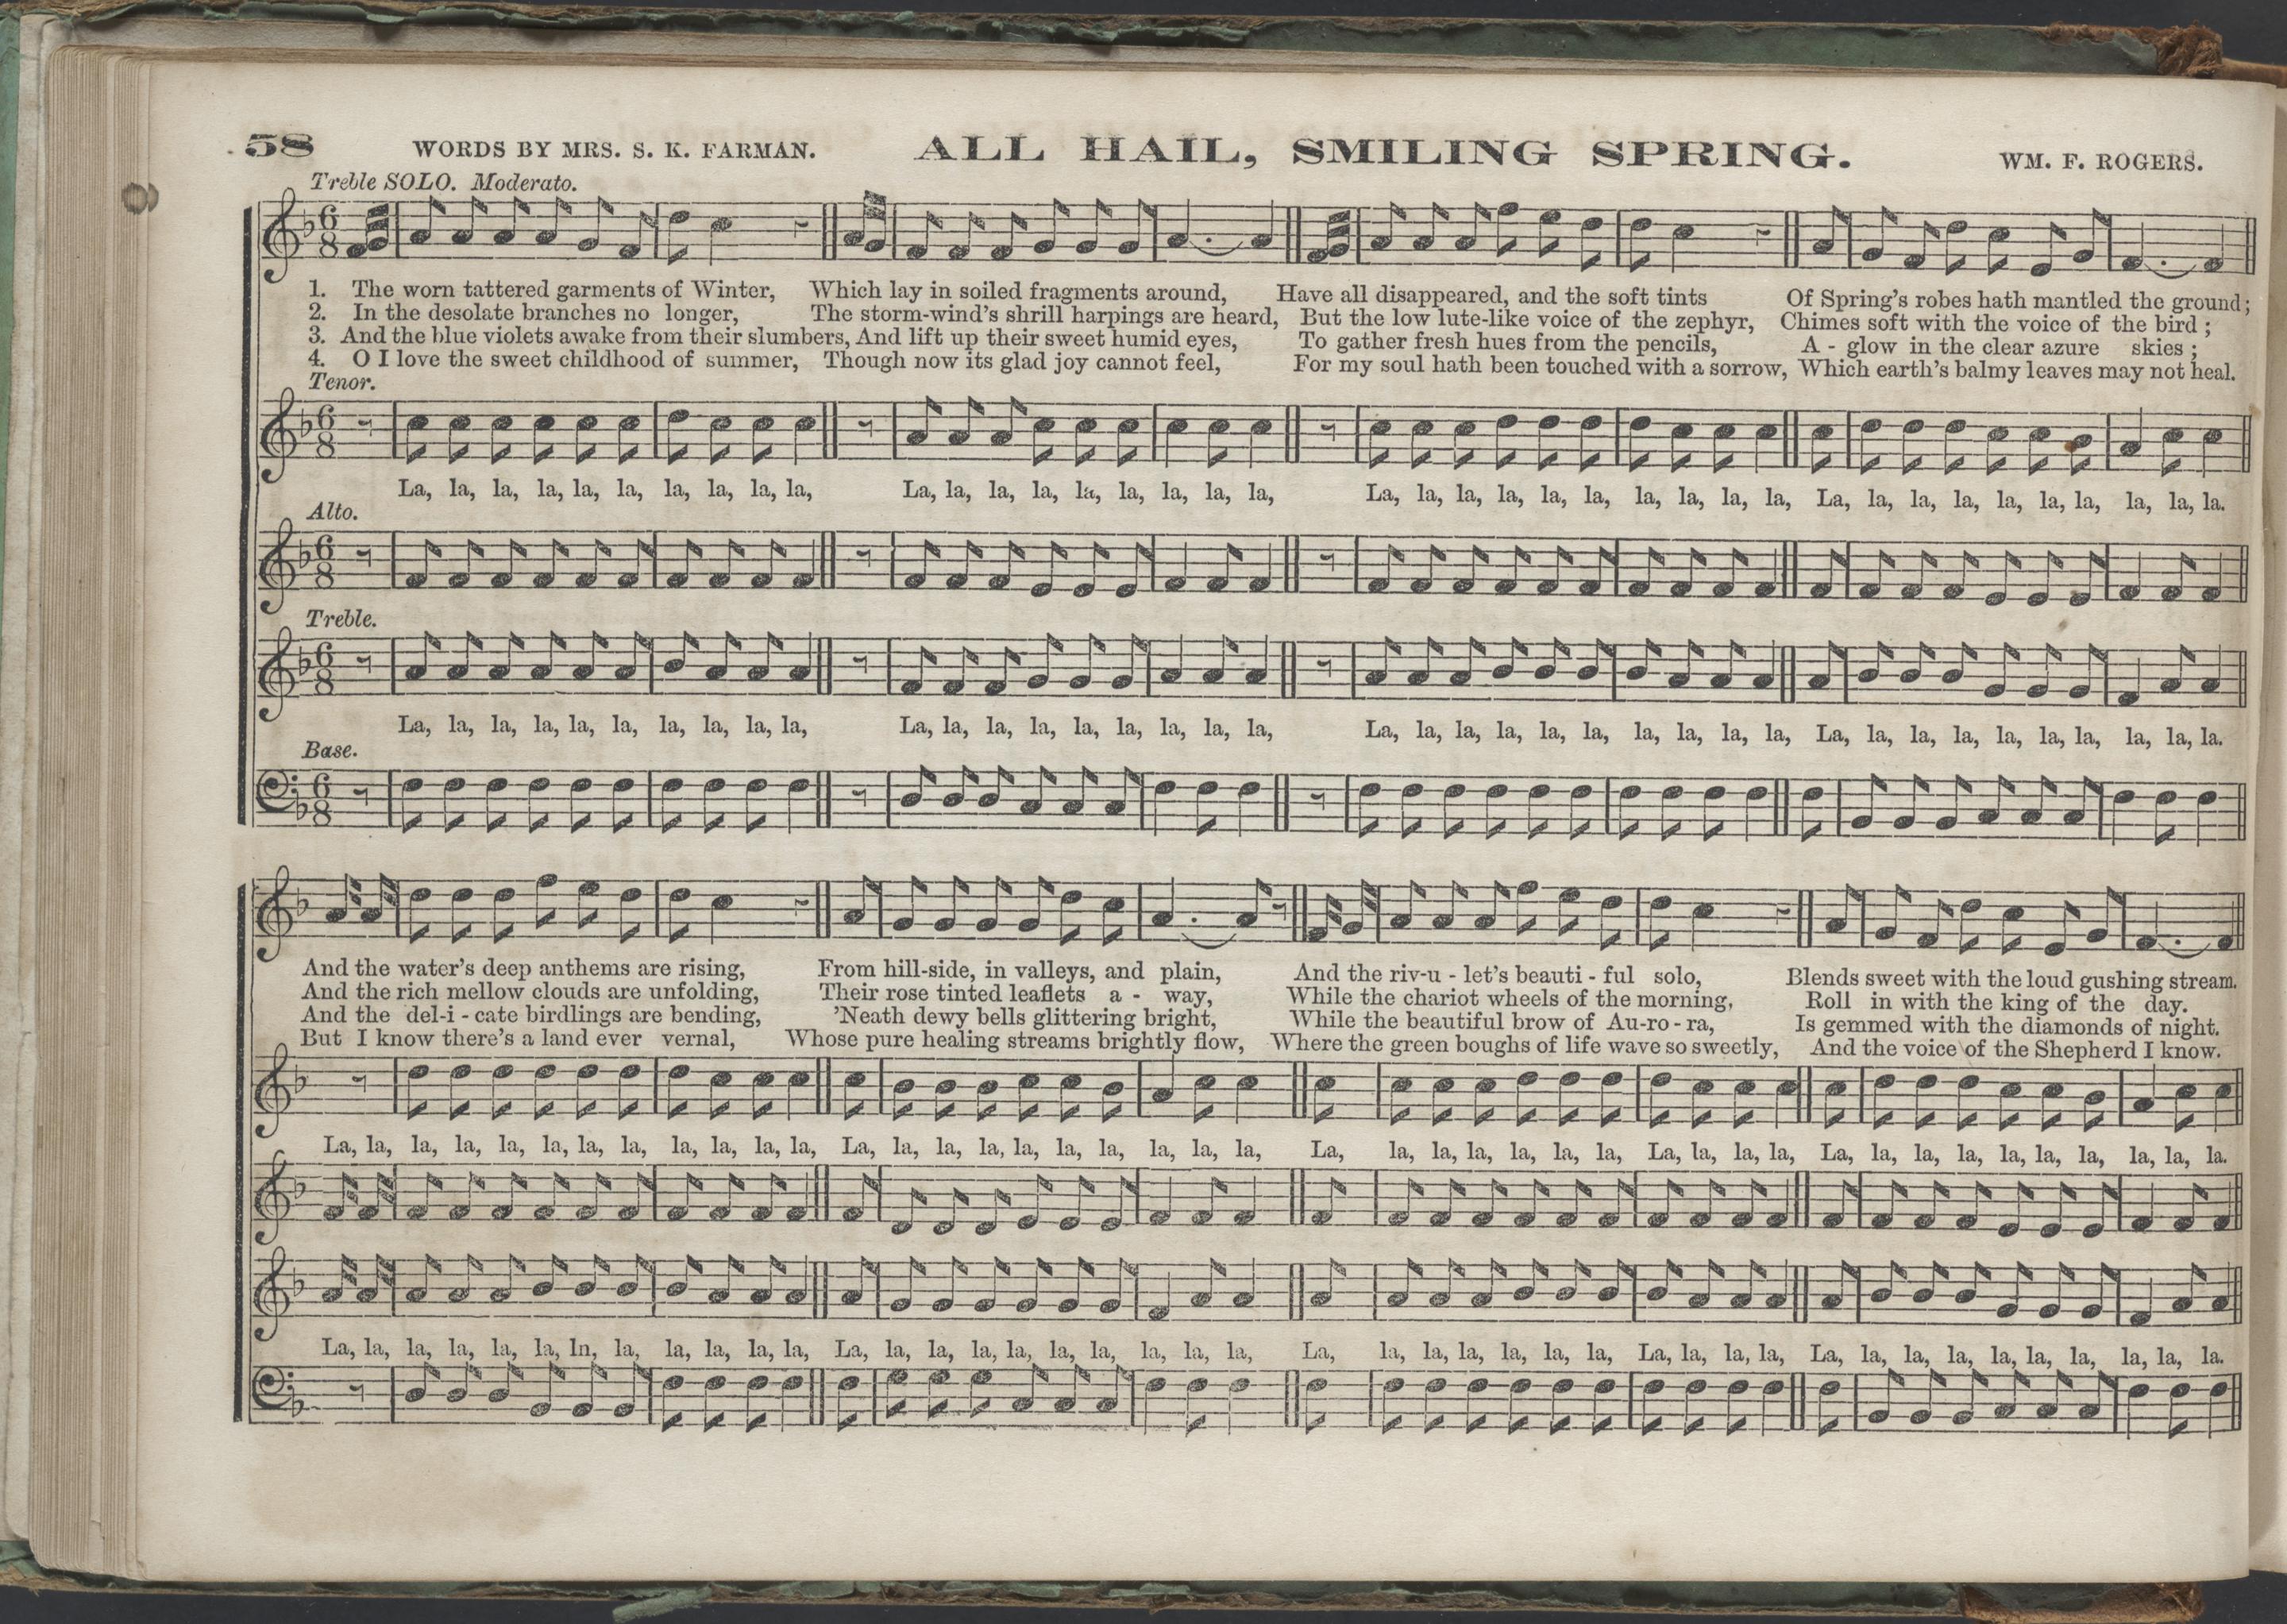 58 WORDS BY MRS. S. K. FARMAN. ALL HAIL, SMILING SPRING. WM. F. ROGERS.
Treble SOLO. Moderato.
6 8
1. The worn tattered garments of Winter, Which lay in soiled fragments around, Have all disappeared, and the soft tints Of Spring's robes hath mantled the ground;
2. In the desolate branches no longer, The storm-wind's shrill harpings are heard, But the low lute-like voice of the zephyr, Chimes soft with the voice of the bird;
3. And the blue violets awake from their slumbers, And lift up their sweet humid eyes, To gather fresh hues from the pencils, A - glow in the clear azure skies;
4. O I love the sweet childhood of summer, Though now its glad joy cannot feel, For my soul hath been touched with a sorrow, Which earth's balmy leaves may not heal.
Tenor.
6 8
La, la, la, la, la, la, la, la, la, la, La, la, la, la, la, la, la, la, la, La, la, la, la, la, la, la, la, la, la, La, la, la, la, la, la, la, la, la, la.
Alto.
6 8
Treble.
6 8
La, la, la, la, la, la, la, la, la, la, La, la, la, la, la, la, la, la, la, La, la, la, la, la, la, la, la, la, la, La, la, la, la, la, la, la, la, la, la.
Base.
6 8
And the water's deep anthems are rising, From hill-side, in valleys, and plain, And the riv-u - let's beauti - ful solo, Blends sweet with the loud gushing stream.
And the rich mellow clouds are unfolding, Their rose tinted leaflets a - way, While the chariot wheels of the morning, Roll in with the king of the day.
And the del-i - cate birdlings are bending, 'Neath dewy bells glittering bright, While the beautiful brow of Au-ro - ra, Is gemmed with the diamonds of night.
But I know there's a land ever vernal, Whose pure healing streams brightly flow, Where the green boughs of life wave so sweetly, And the voice of the Shepherd I know.
La, la, la, la, la, la, la, la, la, la, la, la, La, la, la, la, la, la, la, la, la, la, La, la, la, la, la, la, la, La, la, la, la, La, la, la, la, la, la, la, la, la, la.
La, la, la, la, la, la, ln, la, la, la, la, la, La, la, la, la, la, la, la, la, la, la, La, la, la, la, la, la, la, La, la, la, la, La, la, la, la, la, la, la, la, la, la.